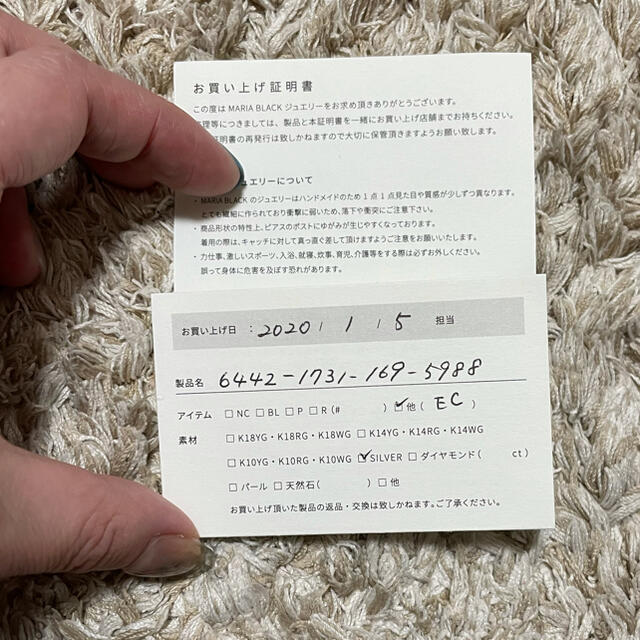 お買い上げ証明書
この度は MARIA BLACK ジュエリーをお求め頂きありがとうございます。
理等につきましては、製品と本証明書を一緒にお買い上げ店舗までお持ちください。
証明書の再発行は致しかねますので大切に保管頂きますようお願い致します。
ュエリーについて
・MARIA BLACK のジュエリーはハンドメイドのため1点1点見た目や質感が少しずつ異なります。
とても繊細に作られており衝撃に弱いため、落下や衝突にご注意下さい。
・商品形状の特性上、ピアスのポストにゆがみが生じやすくなっております。
着用の際は、キャッチに対して真っ直ぐ差して頂けますようご注意をお願いいたします。
・力仕事、激しいスポーツ、入浴、就寝、炊事、育児、介護等をする際は必ずお外しください。
誤って身体に危害を及ぼす恐れがあります。
お買い上げ日 : 2020 / 1 / 5 担当
製品名 6442-1731-169-5988
アイテム □ NC □ BL □ P □ R (# ) ☑ 他 ( EC )
素材 □ K18YG・K18RG・K18WG □ K14YG・K14RG・K14WG
□ K10YG・K10RG・K10WG ☑ SILVER □ ダイヤモンド( ct)
□ パール □ 天然石( ) □ 他
お買い上げ頂いた製品の返品・交換は致しかねます。ご了承ください。